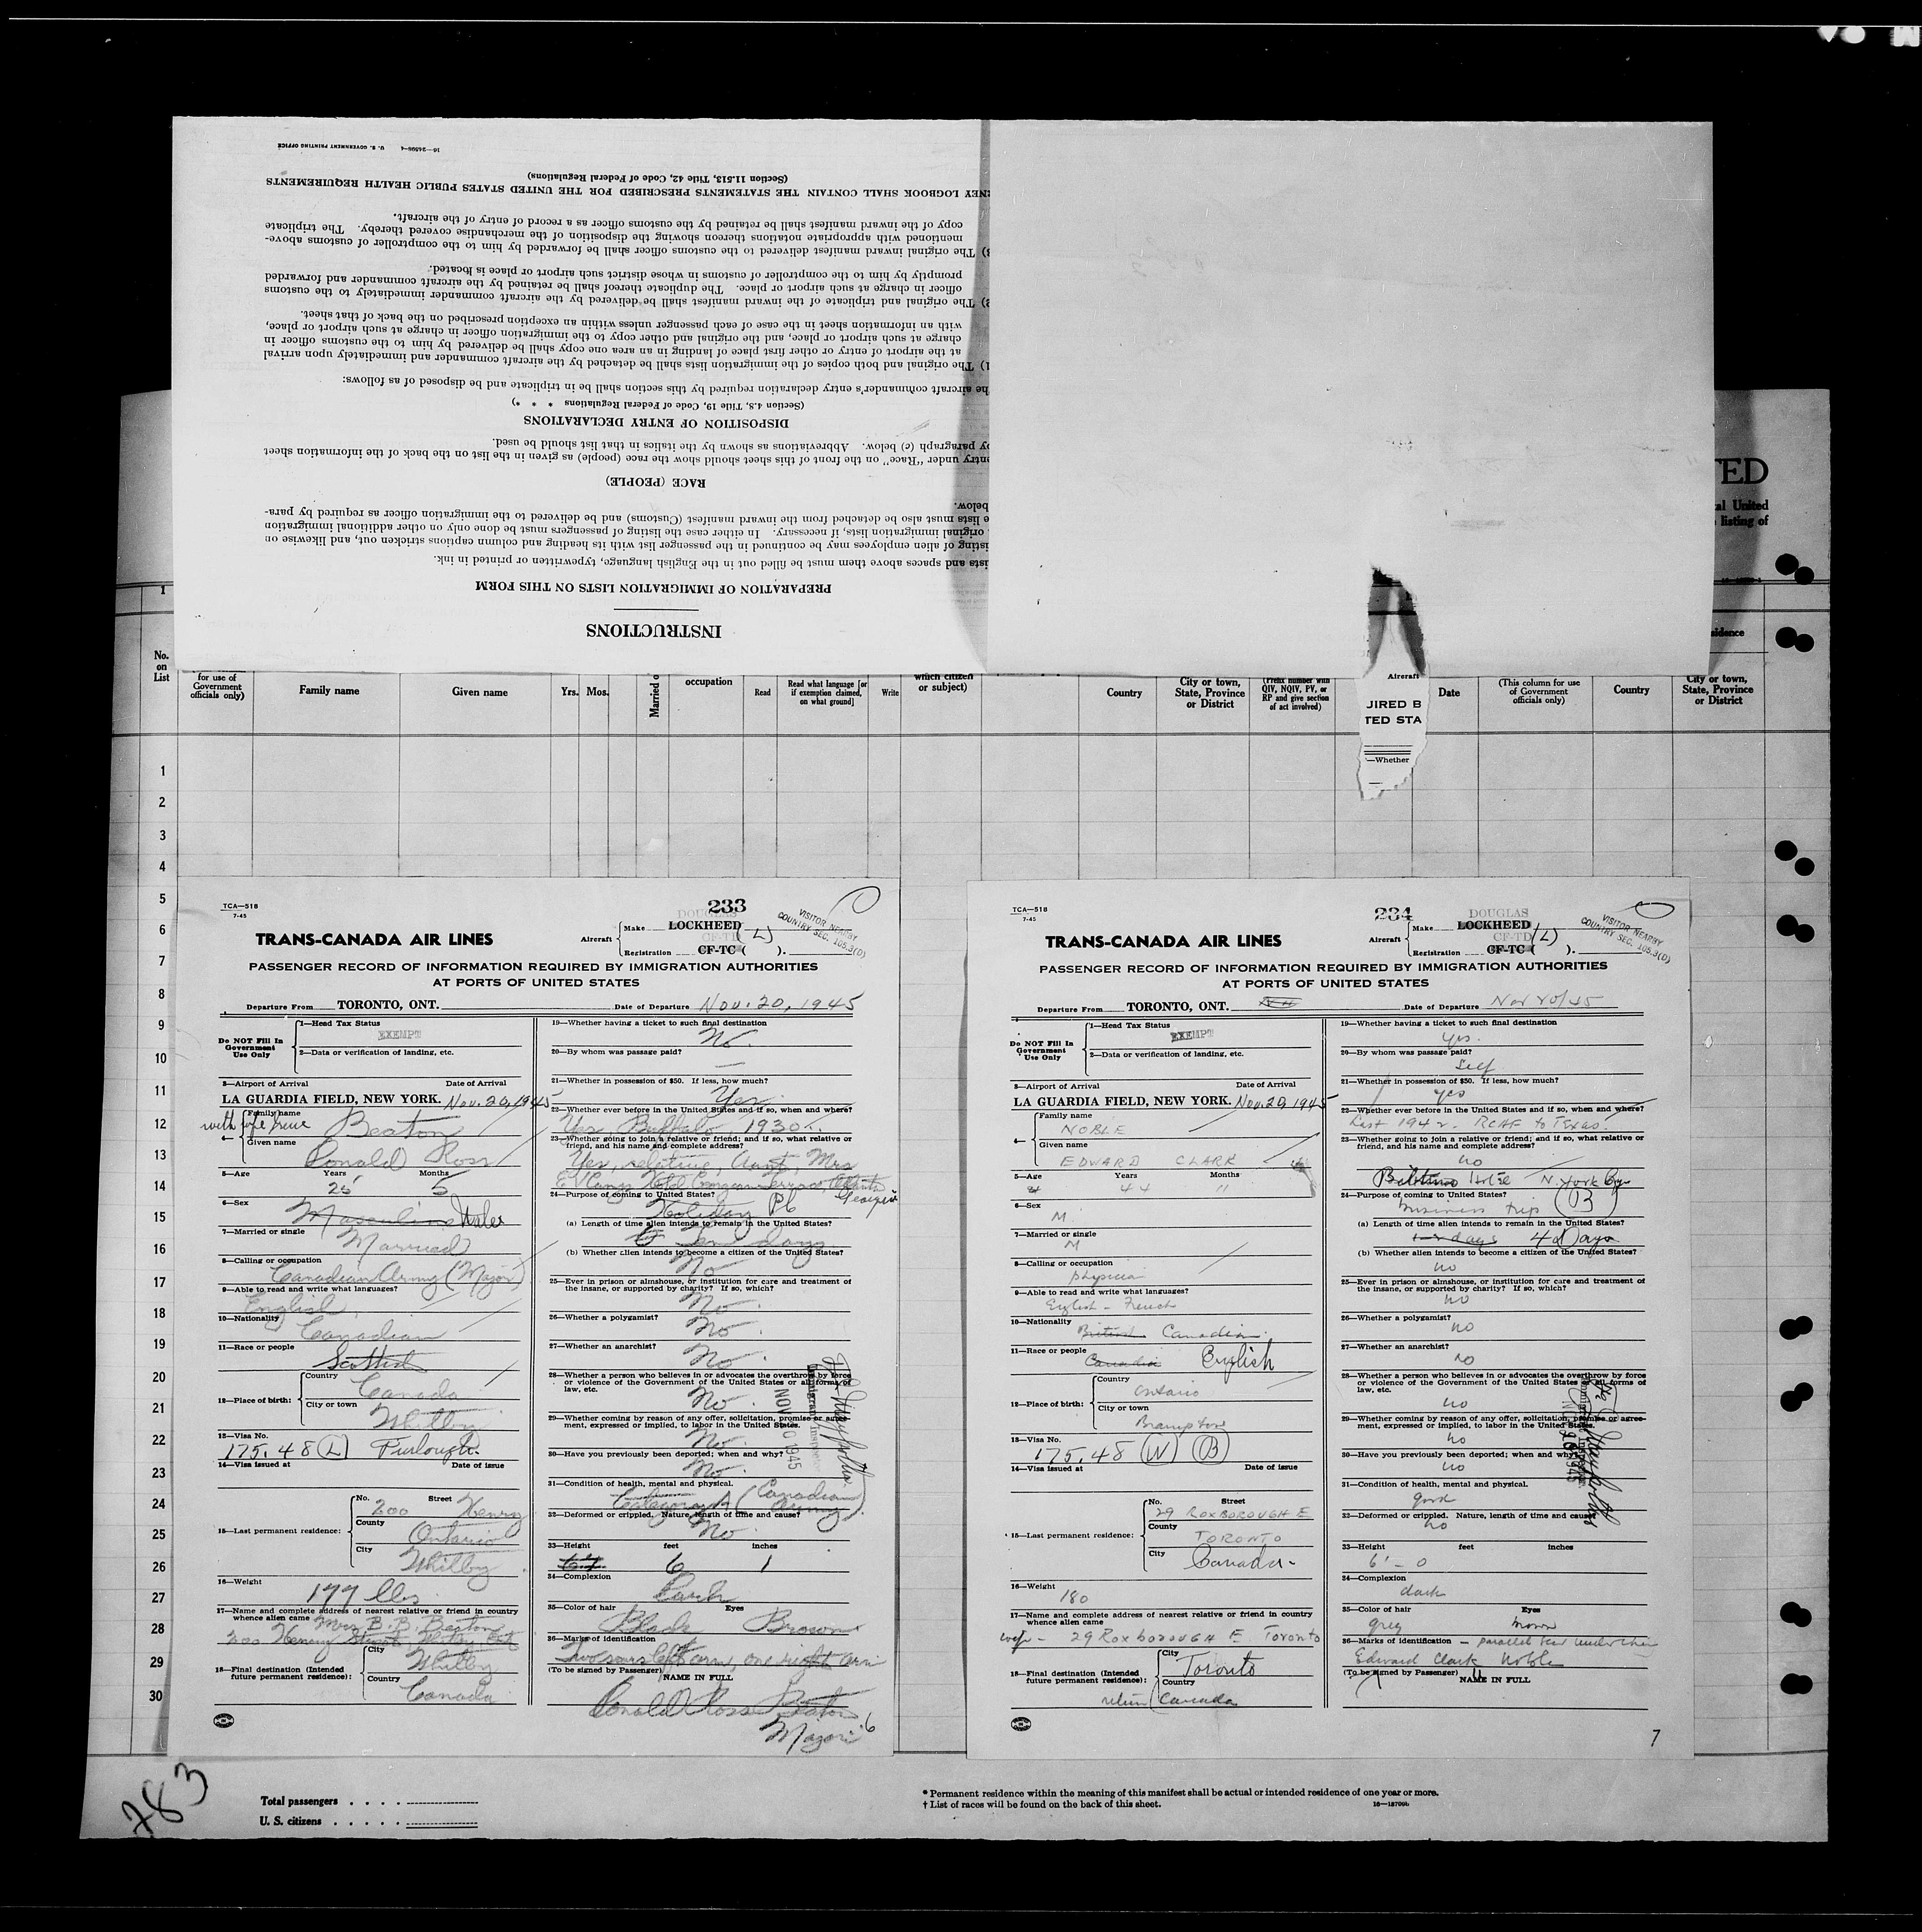 INSTRUCTIONS
PREPARATION OF IMMIGRATION LISTS ON THIS FORM
ists and spaces above them must be filled out in the English language, typewritten or printed in ink.
isting of alien employees may be continued in the passenger list with its heading and column captions stricken out, and likewise on
original immigration lists, if necessary. In either case the listing of passengers must be done only on other additional immigration
e lists must also be detached from the inward manifest (Customs) and be delivered to the immigration officer as required by para-
below.
RACE (PEOPLE)
entry under "Race" on the front of this sheet should show the race (people) as given in the list on the back of the information sheet
by paragraph (c) below. Abbreviations as shown by the italics in that list should be used.
DISPOSITION OF ENTRY DECLARATIONS
(Section 4.8, Title 19, Code of Federal Regulations * * *)
he aircraft commander's entry declaration required by this section shall be in triplicate and be disposed of as follows:
1) The original and both copies of the immigration lists shall be detached by the aircraft commander and immediately upon arrival
at the airport of entry or other first place of landing in an area one copy shall be delivered by him to the customs officer in
charge at such airport or place, and the original and other copy to the immigration officer in charge at such airport or place,
with an information sheet in the case of each passenger unless within an exception prescribed on the back of that sheet.
2) The original and triplicate of the inward manifest shall be delivered by the aircraft commander immediately to the customs
officer in charge at such airport or place. The duplicate thereof shall be retained by the aircraft commander and forwarded
promptly by him to the comptroller of customs in whose district such airport or place is located.
3) The original inward manifest delivered to the customs officer shall be forwarded by him to the comptroller of customs above-
mentioned with appropriate notations thereon showing the disposition of the merchandise covered thereby. The triplicate
copy of the inward manifest shall be retained by the customs officer as a record of entry of the aircraft.
NEY LOGBOOK SHALL CONTAIN THE STATEMENTS PRESCRIBED FOR THE UNITED STATES PUBLIC HEALTH REQUIREMENTS
(Section 11.513, Title 42, Code of Federal Regulations)
16—24898-4 U. S. GOVERNMENT PRINTING OFFICE
TED
al United
listing of
1
idence
No. on List
for use of Government officials only)
Family name
Given name
Yrs. Mos.
Married o
occupation
Read
Read what language [or if exemption claimed, on what ground]
Write
which citizen or subject)
Country
City or town, State, Province or District
(Prefix number with QIV, NQIV, PV, or RP and give section of act involved)
Aircraft
JIRED B
TED STA
—Whether
Date
(This column for use of Government officials only)
Country
City or town, State, Province or District
1
2
3
4
5
6
7
8
9
10
11
12
13
14
15
16
17
18
19
20
21
22
23
24
25
26
27
28
29
30
TCA—518
7-45
233
TRANS-CANADA AIR LINES
Aircraft
Make DOUGLAS LOCKHEED (L)
Registration CF-TD CF-TC ( ).
VISITOR NEARBY
COUNTRY SEC. 105.3(D)
PASSENGER RECORD OF INFORMATION REQUIRED BY IMMIGRATION AUTHORITIES
AT PORTS OF UNITED STATES
Departure From TORONTO, ONT. Date of Departure Nov. 20, 1945
Do NOT Fill In Government Use Only
1—Head Tax Status
EXEMPT
2—Data or verification of landing, etc.
3—Airport of Arrival Date of Arrival
LA GUARDIA FIELD, NEW YORK. Nov. 20, 1945
with wife Irene
4— Family name Beaton
Given name Ronald Ross
5—Age Years 25 Months 5
6—Sex Masculine Male
7—Married or single Married
8—Calling or occupation
Canadian Army (Major)
9—Able to read and write what languages?
English
10—Nationality Canadian
11—Race or people Scottish
12—Place of birth: Country Canada
City or town Whitby
13—Visa No.
175.48 (L) Furlough
14—Visa issued at Date of issue
15—Last permanent residence: No. 200 Street Henry
County Ontario
City Whitby
16—Weight 177 lbs
17—Name and complete address of nearest relative or friend in country whence alien came Mrs B. B. Beaton
200 Henry Street, Whitby, Ont
18—Final destination (Intended future permanent residence): City Whitby
Country Canada
19—Whether having a ticket to such final destination
No.
20—By whom was passage paid?
—
21—Whether in possession of $50. If less, how much?
Yes
22—Whether ever before in the United States and if so, when and where?
Yes, Buffalo, 1930
23—Whether going to join a relative or friend; and if so, what relative or friend, and his name and complete address?
Yes, relative, Aunt, Mrs
Hotel Georgian Terrace, Atlanta Georgia
24—Purpose of coming to United States?
Holiday
(a) Length of time alien intends to remain in the United States?
Ten days
(b) Whether alien intends to become a citizen of the United States?
No
25—Ever in prison or almshouse, or institution for care and treatment of the insane, or supported by charity? If so, which?
No.
26—Whether a polygamist? No.
27—Whether an anarchist? No.
28—Whether a person who believes in or advocates the overthrow by force or violence of the Government of the United States or all forms of law, etc.
No.
29—Whether coming by reason of any offer, solicitation, promise or agreement, expressed or implied, to labor in the United States.
No.
30—Have you previously been deported; when and why?
No.
31—Condition of health, mental and physical.
Category A (Canadian Army)
32—Deformed or crippled. Nature, length of time and cause?
No
33—Height feet 6 inches 1
34—Complexion Dark
35—Color of hair Black Eyes Brown
36—Marks of identification
Two scars left arm, one right arm
(To be signed by Passenger) NAME IN FULL
Ronald Ross Beaton
Major
6
Immigrant Inspector
NOV 20 1945
TCA—518
7-45
234
TRANS-CANADA AIR LINES
Aircraft
Make DOUGLAS LOCKHEED
Registration CF-TD CF-TC (L) ).
VISITOR NEARBY
COUNTRY SEC. 105.3(D)
PASSENGER RECORD OF INFORMATION REQUIRED BY IMMIGRATION AUTHORITIES
AT PORTS OF UNITED STATES
Departure From TORONTO, ONT. Date of Departure Nov 20/45
Do NOT Fill In Government Use Only
1—Head Tax Status
EXEMPT
2—Data or verification of landing, etc.
3—Airport of Arrival Date of Arrival
LA GUARDIA FIELD, NEW YORK. Nov. 20, 1945
4— Family name NOBLE
Given name EDWARD CLARK
5—Age Years 44 Months 11
6—Sex M
7—Married or single M
8—Calling or occupation
physician
9—Able to read and write what languages?
English - French
10—Nationality British Canadian.
11—Race or people Canadian English
12—Place of birth: Country Ontario
City or town Brampton
13—Visa No.
175.48 (N) (B)
14—Visa issued at Date of issue
15—Last permanent residence: No. Street 29 ROXBOROUGH E
County TORONTO
City Canada-
16—Weight 180
17—Name and complete address of nearest relative or friend in country whence alien came
wife - 29 ROXBOROUGH E Toronto
18—Final destination (Intended future permanent residence): City Toronto
Country Canada
return
19—Whether having a ticket to such final destination
yes.
20—By whom was passage paid?
Self
21—Whether in possession of $50. If less, how much?
yes
22—Whether ever before in the United States and if so, when and where?
Last 1942 - RCAF to Texas.
23—Whether going to join a relative or friend; and if so, what relative or friend, and his name and complete address?
no
Biltmore Hotel N. York City
24—Purpose of coming to United States?
business trip (B)
(a) Length of time alien intends to remain in the United States?
days 4 Days
(b) Whether alien intends to become a citizen of the United States?
no
25—Ever in prison or almshouse, or institution for care and treatment of the insane, or supported by charity? If so, which?
no
26—Whether a polygamist? no
27—Whether an anarchist? no
28—Whether a person who believes in or advocates the overthrow by force or violence of the Government of the United States or all forms of law, etc.
no
29—Whether coming by reason of any offer, solicitation, promise or agreement, expressed or implied, to labor in the United States.
no
30—Have you previously been deported; when and why?
no
31—Condition of health, mental and physical.
good
32—Deformed or crippled. Nature, length of time and cause?
no
33—Height feet inches
6' - 0
34—Complexion dark
35—Color of hair grey Eyes brown
36—Marks of identification - parallel scar under chin
Edward Clark Noble
(To be signed by Passenger) NAME IN FULL
7
783
Total passengers . . . .
U. S. citizens . . . . .
* Permanent residence within the meaning of this manifest shall be actual or intended residence of one year or more.
† List of races will be found on the back of this sheet. 16—18706b